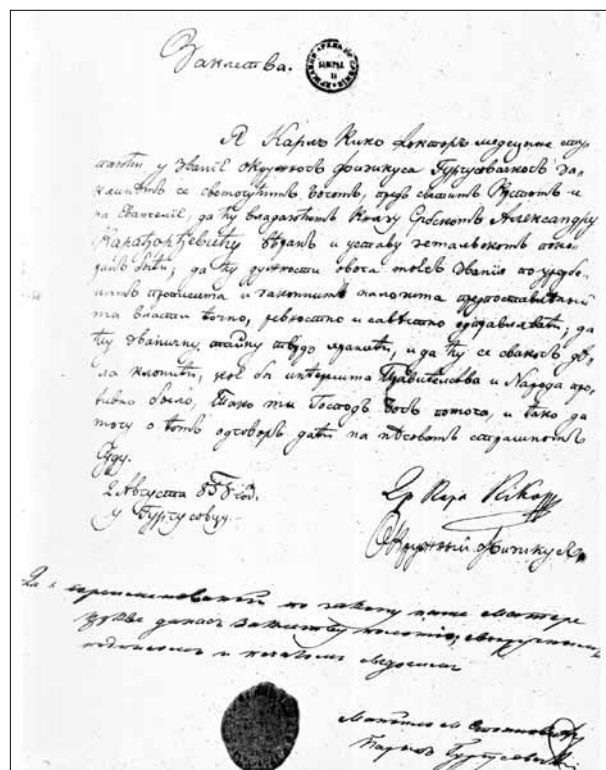 Заклетва.
Я Карлъ Кико Докторъ медецине сту
паюћи у званіє окружногъ физикуса Гургусовачкогъ за
клинѣмъ се свемогућимъ Богомъ, предъ свѣтимъ Крстомъ и
на Єванђелію, да ћу владаюћемъ Князу Србскомъ Александру
Карађорђевићу вѣранъ и уставу земальскомъ
быти; да ћу дужности овога мога званія по уредбе
нымъ и законнимъ налозима предпоставлѣный
ми власти точно, ревностно и савѣстно одправляти; да
ћу званичну тайну твдо хранити, и да ћу се свакогъ дѣ
ла клонити, коє бы интересима Правителства и Народа про
тивно было, Тако ми Господь Богъ помогао, и тако да
могу о томъ одговоръ дати на нѣговомъ страшномъ
Суду.
2 Августа 858 год.
у Гургусовцу.
Др Карл Кико
Окружный Физикусъ
Да є по закону пине
данасъ заклетву положіо, своеручнымъ
подписомъ и печатомъ